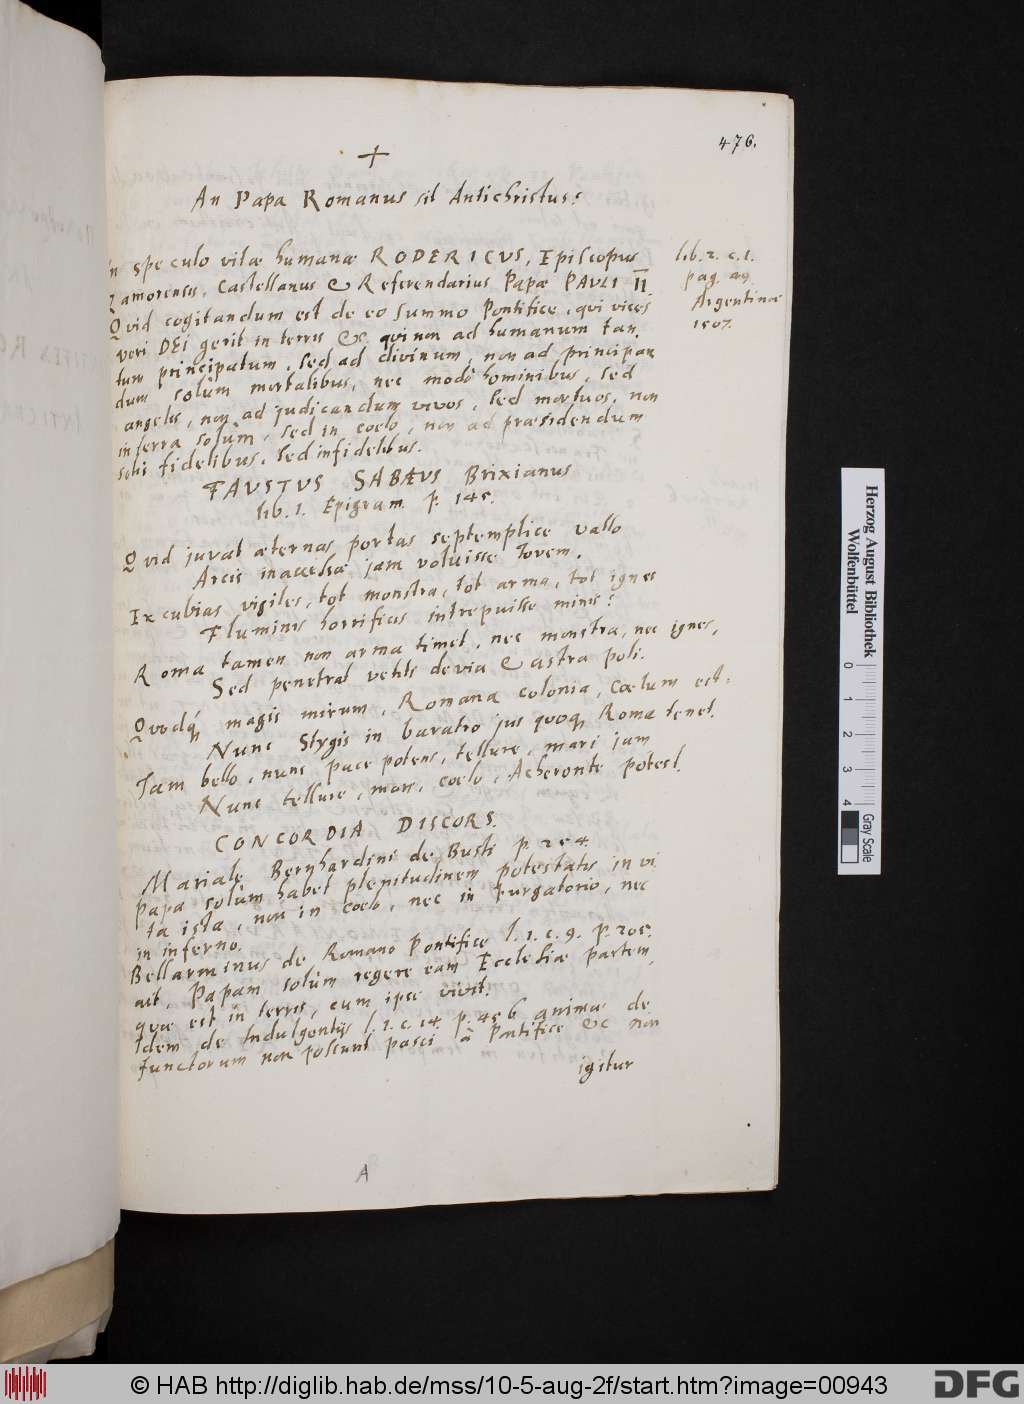 476.
+
An Papa Romanus sit Antichristus?
In speculo vitæ humanæ RODERICUS, Episcopus
Zamorensis, Castellanus & Referendarius Papæ PAULI II
lib. 2. c. 1.
pag. 
Argentinæ
1507.
Quid cogitandum est de eo summo Pontifice, qui vices
veri DEI gerit in terris &c. qui non ad humanum tan,
tum principatum, sed ad divinum, non ad principan
dum solùm mortalibus, nec modò hominibus, sed
angelis, non ad judicandum vivos, sed mortuos, non
in terra solùm, sed in coelo, non ad præsidendum
soli fidelibus, sed infidelibus.
FAUSTUS SABÆUS Brixianus
lib. 1. Epigram. p. 145.
Quid juvat æternas portas septemplice vallo
Arcis inaccessæ jam voluisse Jovem.
Excubias vigiles, tot monstra, tot arma, tot ignes
Fluminis horrificas intrepuisse minis?
Roma tamen non arma timet, nec monstra, nec ignes,
Sed penetrat vehis devia & astra poli.
Quodq́ magis mirum, Romana colonia, coelum est:
Nunc Stygis in baratro jus quoq Roma tenet.
Jam bello, nunc pace potens, tellure, mari jam
Nunc tellure, mari, coelo, Acheronte potest.
CONCORDIA DISCORS.
Mariale Bernhardini de Busti p. 254
Papa solùm habet plenitudinem potestatis in vi
ta ista, non in coelo, nec in Purgatorio, nec
in inferno.
Bellarminus de Romano Pontifice l. 1. c. 9. p. 205.
ait, Papam solùm regere eam Ecclesiæ partem,
quæ est in terris, cum ipse vivit.
Idem de Indulgentijs l. 1. c. 14. p. 456 animæ de
functorum non possunt pasci à Pontifice &c non
igitur
A
Herzog August Bibliothek
Wolfenbüttel
0 1 2 3 4
Gray Scale
© HAB http://diglib.hab.de/mss/10-5-aug-2f/start.htm?image=00943
DFG